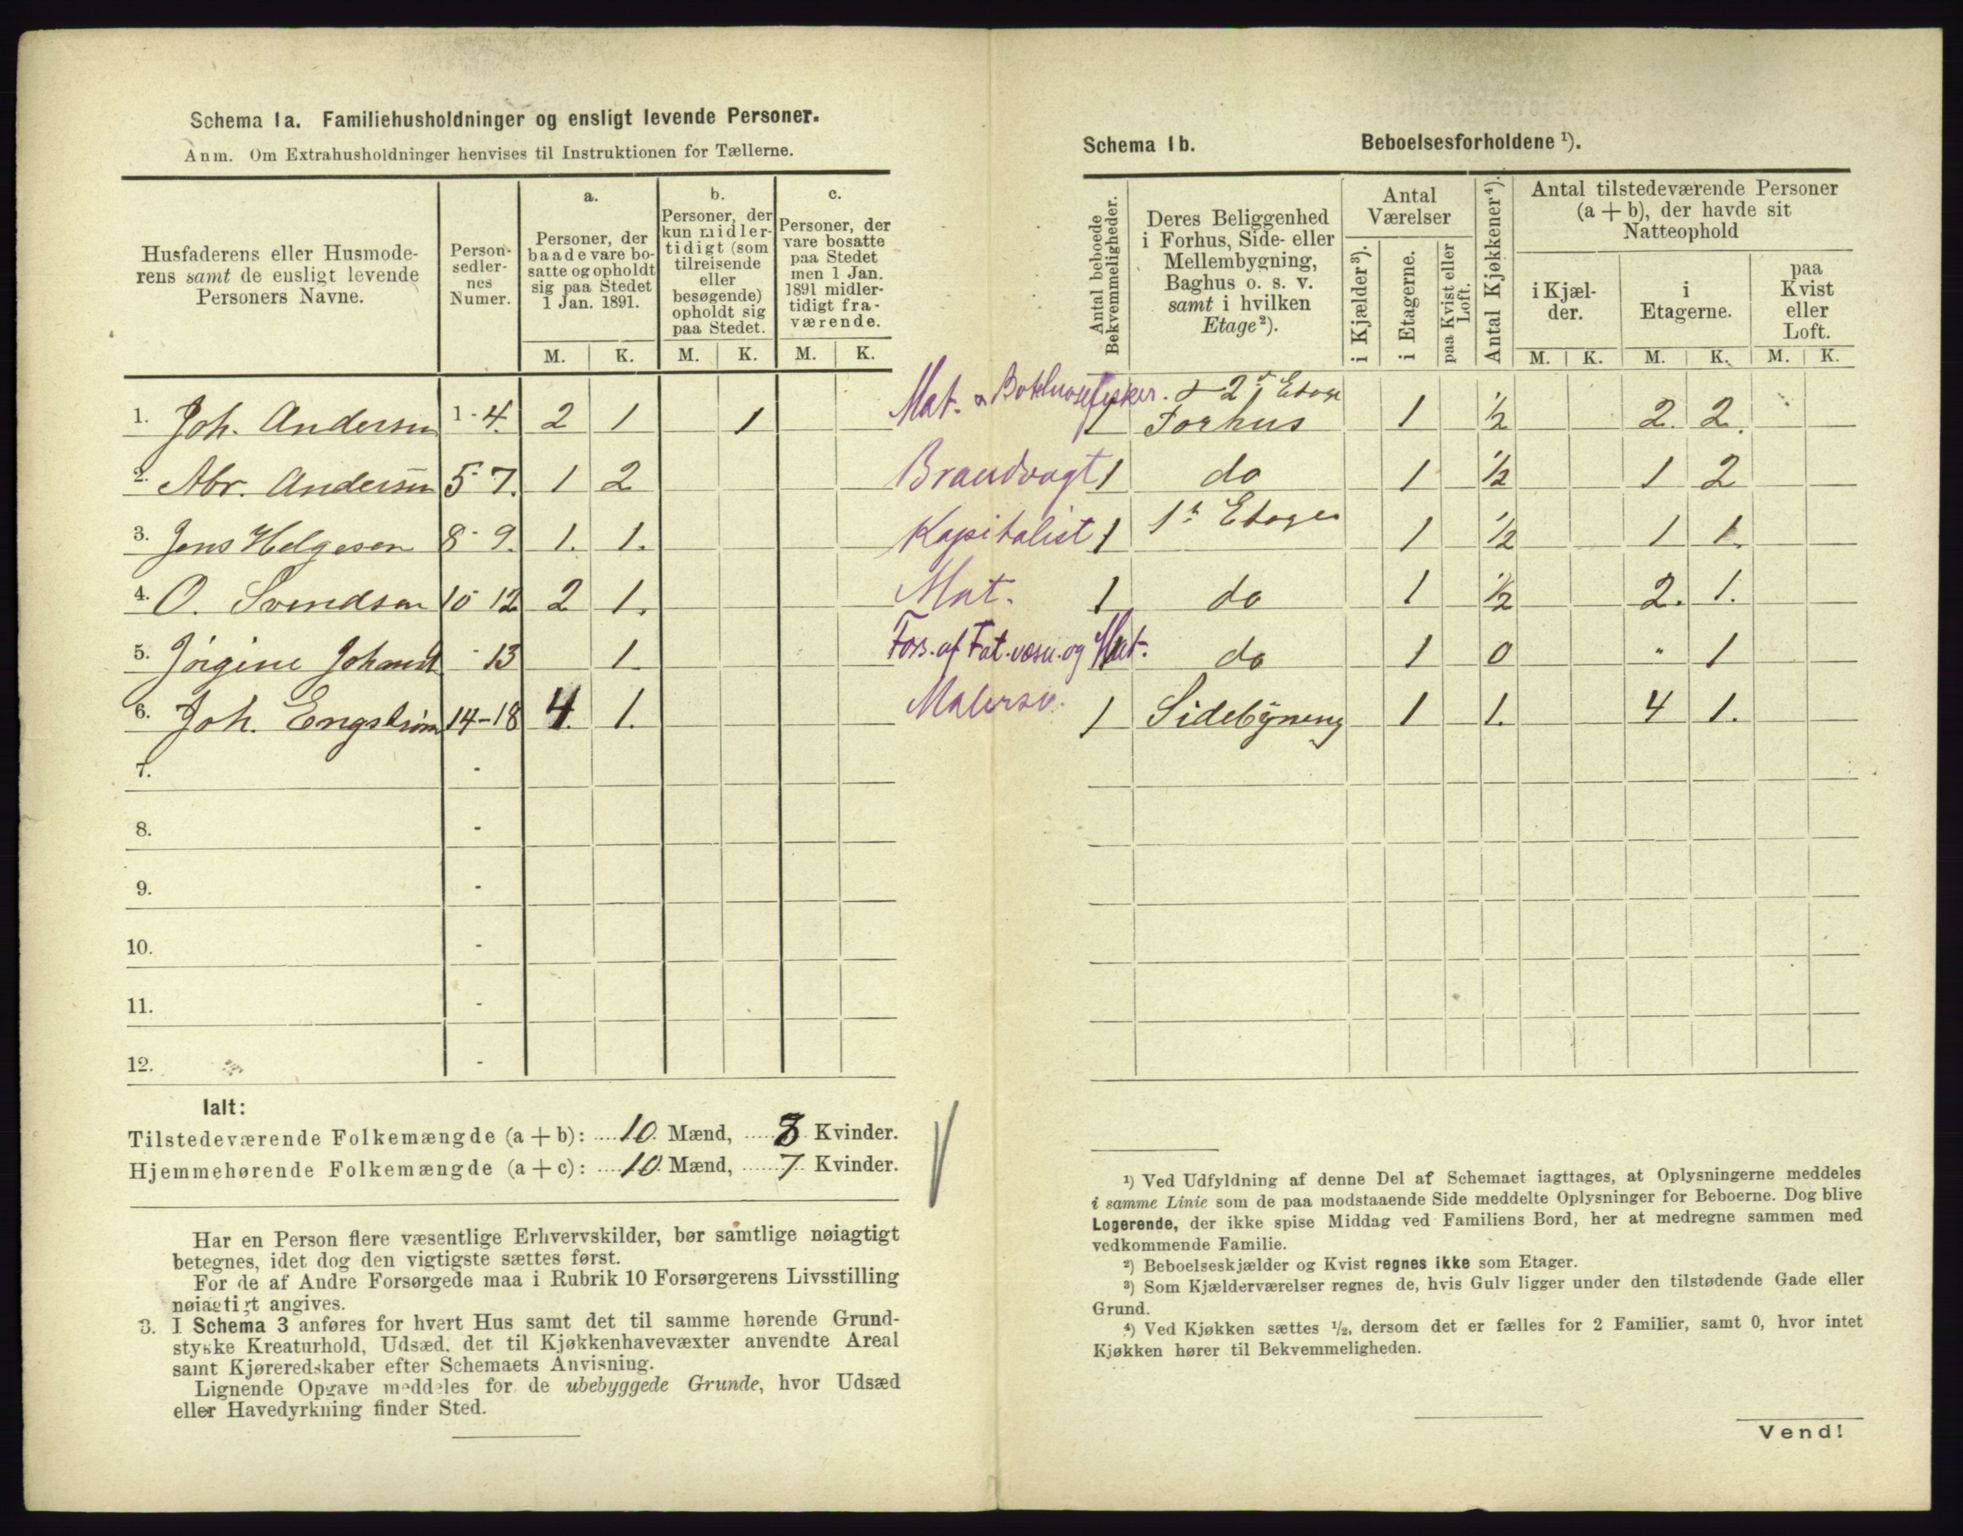 Schema 1a. Familiehusholdninger og ensligt levende Personer.
Anm. Om Extrahusholdninger henvises til Instruktionen for Tællerne.
Husfaderens eller Husmode-
rens samt de ensligt levende
Personers Navne.
Person-
sedler-
nes
Numer.
a.
Personer, der
baade vare bo-
satte og opholdt
sig paa Stedet
1 Jan. 1891.
b.
Personer, der
kun midler-
tidigt (som
tilreisende
eller
besøgende)
opholdt sig
paa Stedet.
c.
Personer, der
vare bosatte
paa Stedet
men 1 Jan.
1891 midler-
tidigt fra-
værende.
M. K. M. K. M. K.
1. Joh. Andersen 1-4. 2 1 1
2. Abr. Andersen 5-7. 1 2
3. Jens Helgesen 8-9. 1. 1.
4. O. Svendsen 10-12 2 1.
5. Jørgine Johansd -13 1.
6. Joh. Engstrøm 14-18 4. 1.
7. -
8. -
9. -
10. -
11. -
12. -
Ialt:
Tilstedeværende Folkemængde (a + b): 10. Mænd, 8 Kvinder.
Hjemmehørende Folkemængde (a + c): 10. Mænd, 7 Kvinder.
Har en Person flere væsentlige Erhvervskilder, bør samtlige nøiagtigt
betegnes, idet dog den vigtigste sættes først.
For de af Andre Forsørgede maa i Rubrik 10 Forsørgerens Livsstilling
nøiagtigt angives.
3. I Schema 3 anføres for hvert Hus samt det til samme hørende Grund-
stykke Kreaturhold, Udsæd, det til Kjøkkenhavevæxter anvendte Areal
samt Kjøreredskaber efter Schemaets Anvisning.
Lignende Opgave meddeles for de ubebyggede Grunde, hvor Udsæd
eller Havedyrkning finder Sted.
Schema 1b. Beboelsesforholdene ¹).
Antal beboede
Bekvemmeligheder.
Deres Beliggenhed
i Forhus, Side- eller
Mellembygning,
Baghus o. s. v.
samt i hvilken
Etage²).
Antal
Værelser
i Kjælder³).
i Etagerne.
paa Kvist eller
Loft.
Antal Kjøkkener⁴).
Antal tilstedeværende Personer
(a + b), der havde sit
Natteophold
i Kjæl-
der.
i
Etagerne.
paa
Kvist
eller
Loft.
M. K. M. K. M. K.
Mat. 1 2 Etage
Forhus 1 ½ 2. 2.
Brandvagt 1 do 1 ½ 1 2
Kapitalist 1 1ste Etage 1 ½ 1 1.
Mat. 1 do 1 ½ 2. 1.
Fors. af Fat.væsn. og Mat. 1 do 1 0 " 1
Malersv. 1 Sidebÿneng 1 1. 4 1.
¹) Ved Udfyldning af denne Del af Schemaet iagttages, at Oplysningerne meddeles
i samme Linie som de paa modstaaende Side meddelte Oplysninger for Beboerne. Dog blive
Logerende, der ikke spise Middag ved Familiens Bord, her at medregne sammen med
vedkommende Familie.
²) Beboelseskjælder og Kvist regnes ikke som Etager.
³) Som Kjælderværelser regnes de, hvis Gulv ligger under den tilstødende Gade eller
Grund.
⁴) Ved Kjøkken sættes ½, dersom det er fælles for 2 Familier, samt 0, hvor intet
Kjøkken hører til Bekvemmeligheden.
Vend!